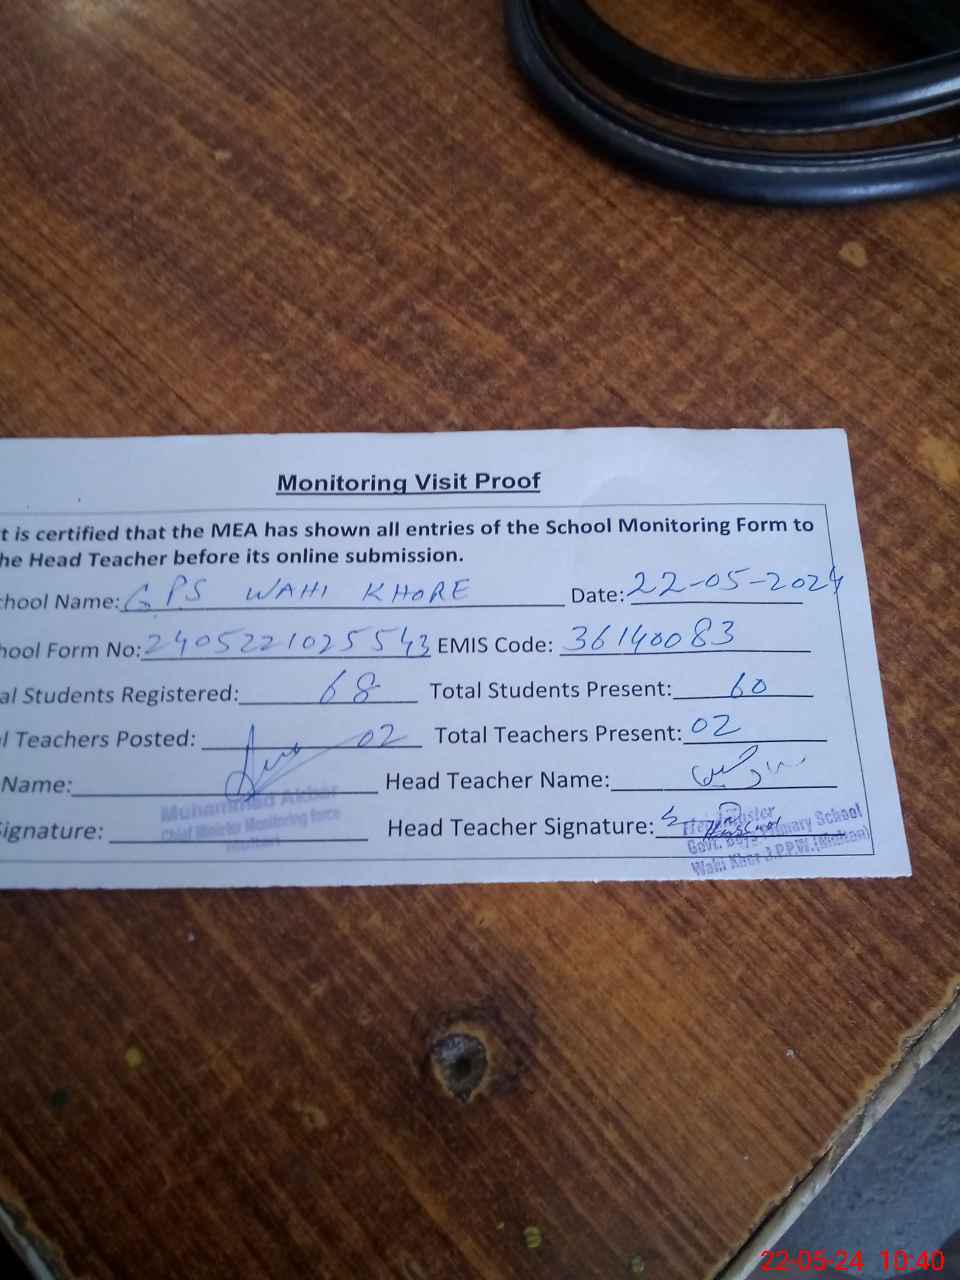 Monitoring Visit Proof
t is certified that the MEA has shown all entries of the School Monitoring Form to
he Head Teacher before its online submission.
chool Name: GPS WAHI KHORE Date: 22-05-2024
hool Form No: 2405221025543 EMIS Code: 36140083
al Students Registered: 68 Total Students Present: 60
l Teachers Posted: 02 Total Teachers Present: 02
Name: Head Teacher Name:
Muhammad Akbar
Chief Minister Monitoring force
Multan
ignature: Head Teacher Signature:
Headmaster
Govt. Boys Primary School
Wahi Khor J.P.P.W.(Multan)
22-05-24 10:40